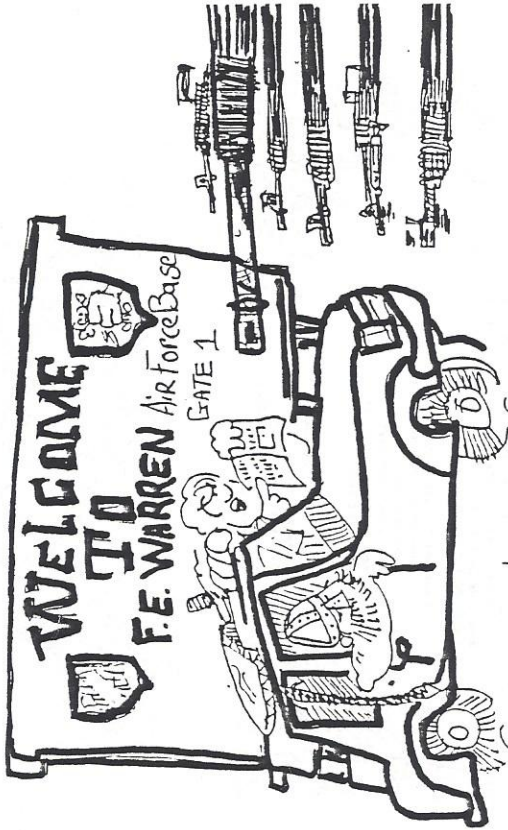 WELCOME
TO
F.E. WARREN AIR FORCE BASE
GATE 1